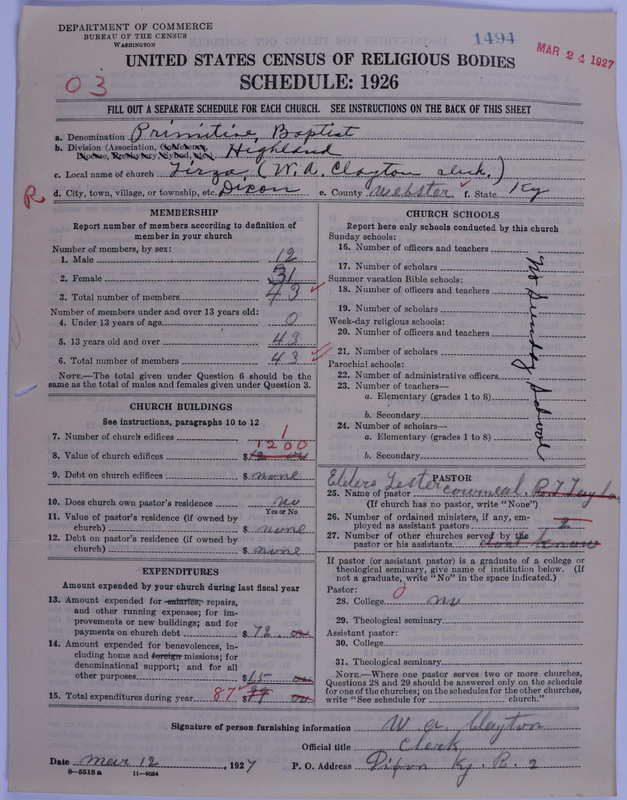 DEPARTMENT OF COMMERCE
BUREAU OF THE CENSUS
WASHINGTON
1494
MAR 24 1927
UNITED STATES CENSUS OF RELIGIOUS BODIES
SCHEDULE: 1926
03
FILL OUT A SEPARATE SCHEDULE FOR EACH CHURCH. SEE INSTRUCTIONS ON THE BACK OF THIS SHEET
a. Denomination Primitive Baptist
b. Division (Association, Conference, Highland
Diocese, Presbytery, Synod, etc.)
c. Local name of church Tirza (W. A. Clayton Clerk.)
R
d. City, town, village, or township, etc. Dixon e. County Webster f. State Ky
MEMBERSHIP
Report number of members according to definition of
member in your church
Number of members, by sex:
1. Male 12
2. Female 31
3. Total number of members 43
Number of members under and over 13 years old:
4. Under 13 years of age 0
5. 13 years old and over 43
6. Total number of members 43
NOTE.—The total given under Question 6 should be the
same as the total of males and females given under Question 3.
CHURCH BUILDINGS
See instructions, paragraphs 10 to 12
7. Number of church edifices 1
1200
8. Value of church edifices $
9. Debt on church edifices $ none
10. Does church own pastor's residence no
Yes or No
11. Value of pastor's residence (if owned by
church) $ none
12. Debt on pastor's residence (if owned by
church) $ none
EXPENDITURES
Amount expended by your church during last fiscal year
13. Amount expended for salaries, repairs,
and other running expenses; for im-
provements or new buildings; and for
payments on church debt $ 72
14. Amount expended for benevolences, in-
cluding home and foreign missions; for
denominational support; and for all
other purposes $ 15
15. Total expenditures during year 87 $
CHURCH SCHOOLS
Report here only schools conducted by this church
Sunday schools:
16. Number of officers and teachers
17. Number of scholars
Summer vacation Bible schools:
18. Number of officers and teachers
19. Number of scholars
Week-day religious schools:
20. Number of officers and teachers
21. Number of scholars
Parochial schools:
22. Number of administrative officers
23. Number of teachers—
a. Elementary (grades 1 to 8)
b. Secondary
24. Number of scholars—
a. Elementary (grades 1 to 8)
b. Secondary
No Sunday School
PASTOR
Elders Lester
25. Name of pastor
(If church has no pastor, write "None")
26. Number of ordained ministers, if any, em-
ployed as assistant pastors 2
27. Number of other churches served by the
pastor or his assistants dont know
If pastor (or assistant pastor) is a graduate of a college or
theological seminary, give name of institution below. (If
not a graduate, write "No" in the space indicated.)
Pastor: 0
28. College no
29. Theological seminary
Assistant pastor:
30. College
31. Theological seminary
NOTE.—Where one pastor serves two or more churches,
Questions 28 and 29 should be answered only on the schedule
for one of the churches; on the schedules for the other churches,
write "See schedule for church."
Signature of person furnishing information W. A. Clayton
Official title Clerk
Date Mar 12, 1927 P. O. Address Dixon Ky. R. 2
8—5518 a 11—9054